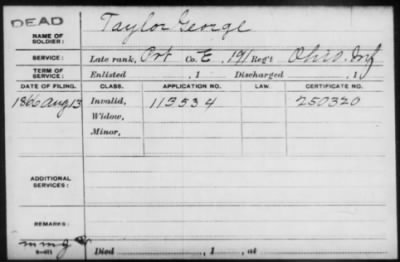 DEAD
NAME OF SOLDIER: Taylor George
SERVICE: Late rank, Co. E, 191 Reg't Ohio Inf
TERM OF SERVICE: Enlisted , 1 Discharged , 1
DATE OF FILING. CLASS. APPLICATION NO. LAW. CERTIFICATE NO.
1866 Aug 13 Invalid, 113534 250320
Widow,
Minor,
ADDITIONAL SERVICES:
REMARKS:
Died , 1 , at